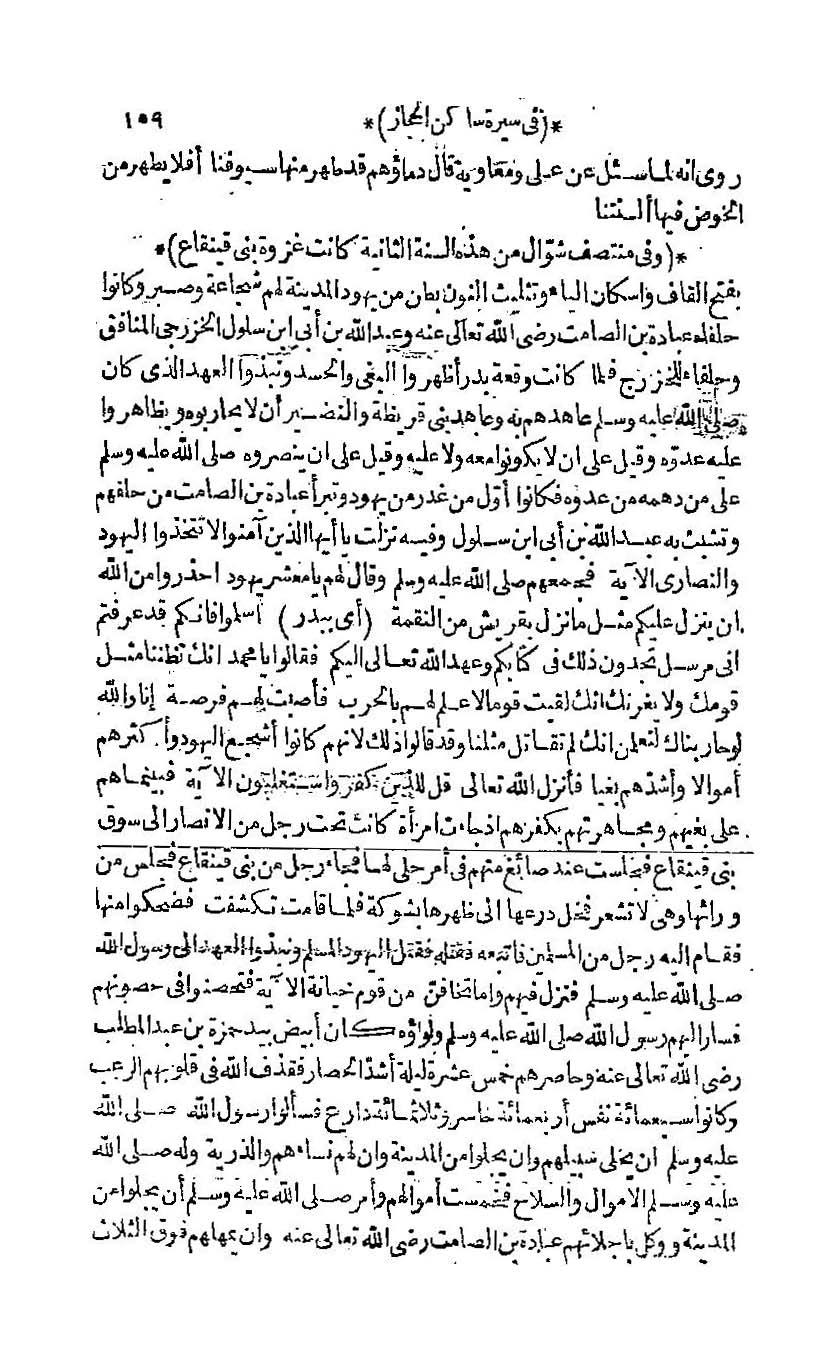 *(في سيرة ساكن الحجاز)* ١٥٩
روى انه لما سئل عن على ومعاوية قال دماؤهم قد طهر منها سيوفنا أفلا يطهر من
الخوض فيها ألسنتنا
*(وفى منتصف شوّال من هذه السنة الثانية كانت غزوة بنى قينقاع)*
بفتح القاف واسكان الياء وتثليث النون بطن من يهود المدينة لهم شجاعة وصبر وكانوا
حلفاء عبادة بن الصامت رضى الله تعالى عنه وعبد الله بن أبى ابن سلول الخزرجى المنافق
وحلفاء للخزرج فلما كانت وقعة بدر أظهروا البغى والحسد ونبذوا العهد الذى كان
صلى الله عليه وسلم عاهدهم به وعاهد بنى قريظة والنضير أن لا يحاربوه ويظاهروا
عليه عدوّه وقيل على ان لا يكونوا معه ولا عليه وقيل على ان ينصروه صلى الله عليه وسلم
على من دهمه من عدوه فكانوا أوّل من غدر من يهود وتبرأ عبادة بن الصامت من حلفهم
وتشبث به عبد الله بن أبى ابن سلول وفيه نزلت يا أيها الذين آمنوا لا تتخذوا اليهود
والنصارى الآية فجمعهم صلى الله عليه وسلم وقال لهم يا معشر يهود احذروا من الله
ان ينزل عليكم مثل ما نزل بقريش من النقمة (أى ببدر) اسلموا فانكم قد عرفتم
انى مرسل تجدون ذلك فى كتابكم وعهد الله تعالى اليكم فقالوا يا محمد انك تظننا مثل
قومك ولا يغرنك انك لقيت قوما لا علم لهم بالحرب فأصبت لهم فرصة إنا والله
لو حاربناك لتعلمن انك لم تقاتل مثلنا وقد قالوا ذلك لانهم كانوا أشجع اليهود وأكثرهم
أموالا وأشدّهم بغيا فأنزل الله تعالى قل للذين كفروا ستغلبون الآية فبينماهم
على بغيهم ومجاهرتهم بكفرهم اذ جاءت امرأة كانت تحت رجل من الانصار الى سوق
بنى قينقاع فجلست عند صائغ منهم فى أمر حلى لها فجاء رجل من بنى قينقاع فجلس من
ورائها وهى لا تشعر فخل درعها الى ظهرها بشوكة فلما قامت تكشفت فضحكوا منها
فقام اليه رجل من المسلمين فاتبعه فقتله فقتل اليهود المسلم ونبذوا العهد الى رسول الله
صلى الله عليه وسلم فنزل فيهم واما تخافنّ من قوم خيانة الآية فتحصنوا فى حصونهم
فسار اليهم رسول الله صلى الله عليه وسلم ولواؤه كان أبيض بيد حمزة بن عبد المطلب
رضى الله تعالى عنه وحاصرهم خمس عشرة ليلة أشدّ الحصار فقذف الله فى قلوبهم الرعب
وكانوا سبعمائة نفس أربعمائة حاسر وثلاثمائة دارع فسألوا رسول الله صلى الله
عليه وسلم ان يخلى سبيلهم وان يجلوا من المدينة وان لهم نساءهم والذرية وله صلى الله
عليه وسلم الاموال والسلاح فخمست أموالهم وأمر صلى الله عليه وسلم أن يجلوا عن
المدينة ووكل باجلائهم عبادة بن الصامت رضى الله تعالى عنه وان يمهلهم فوق الثلاث